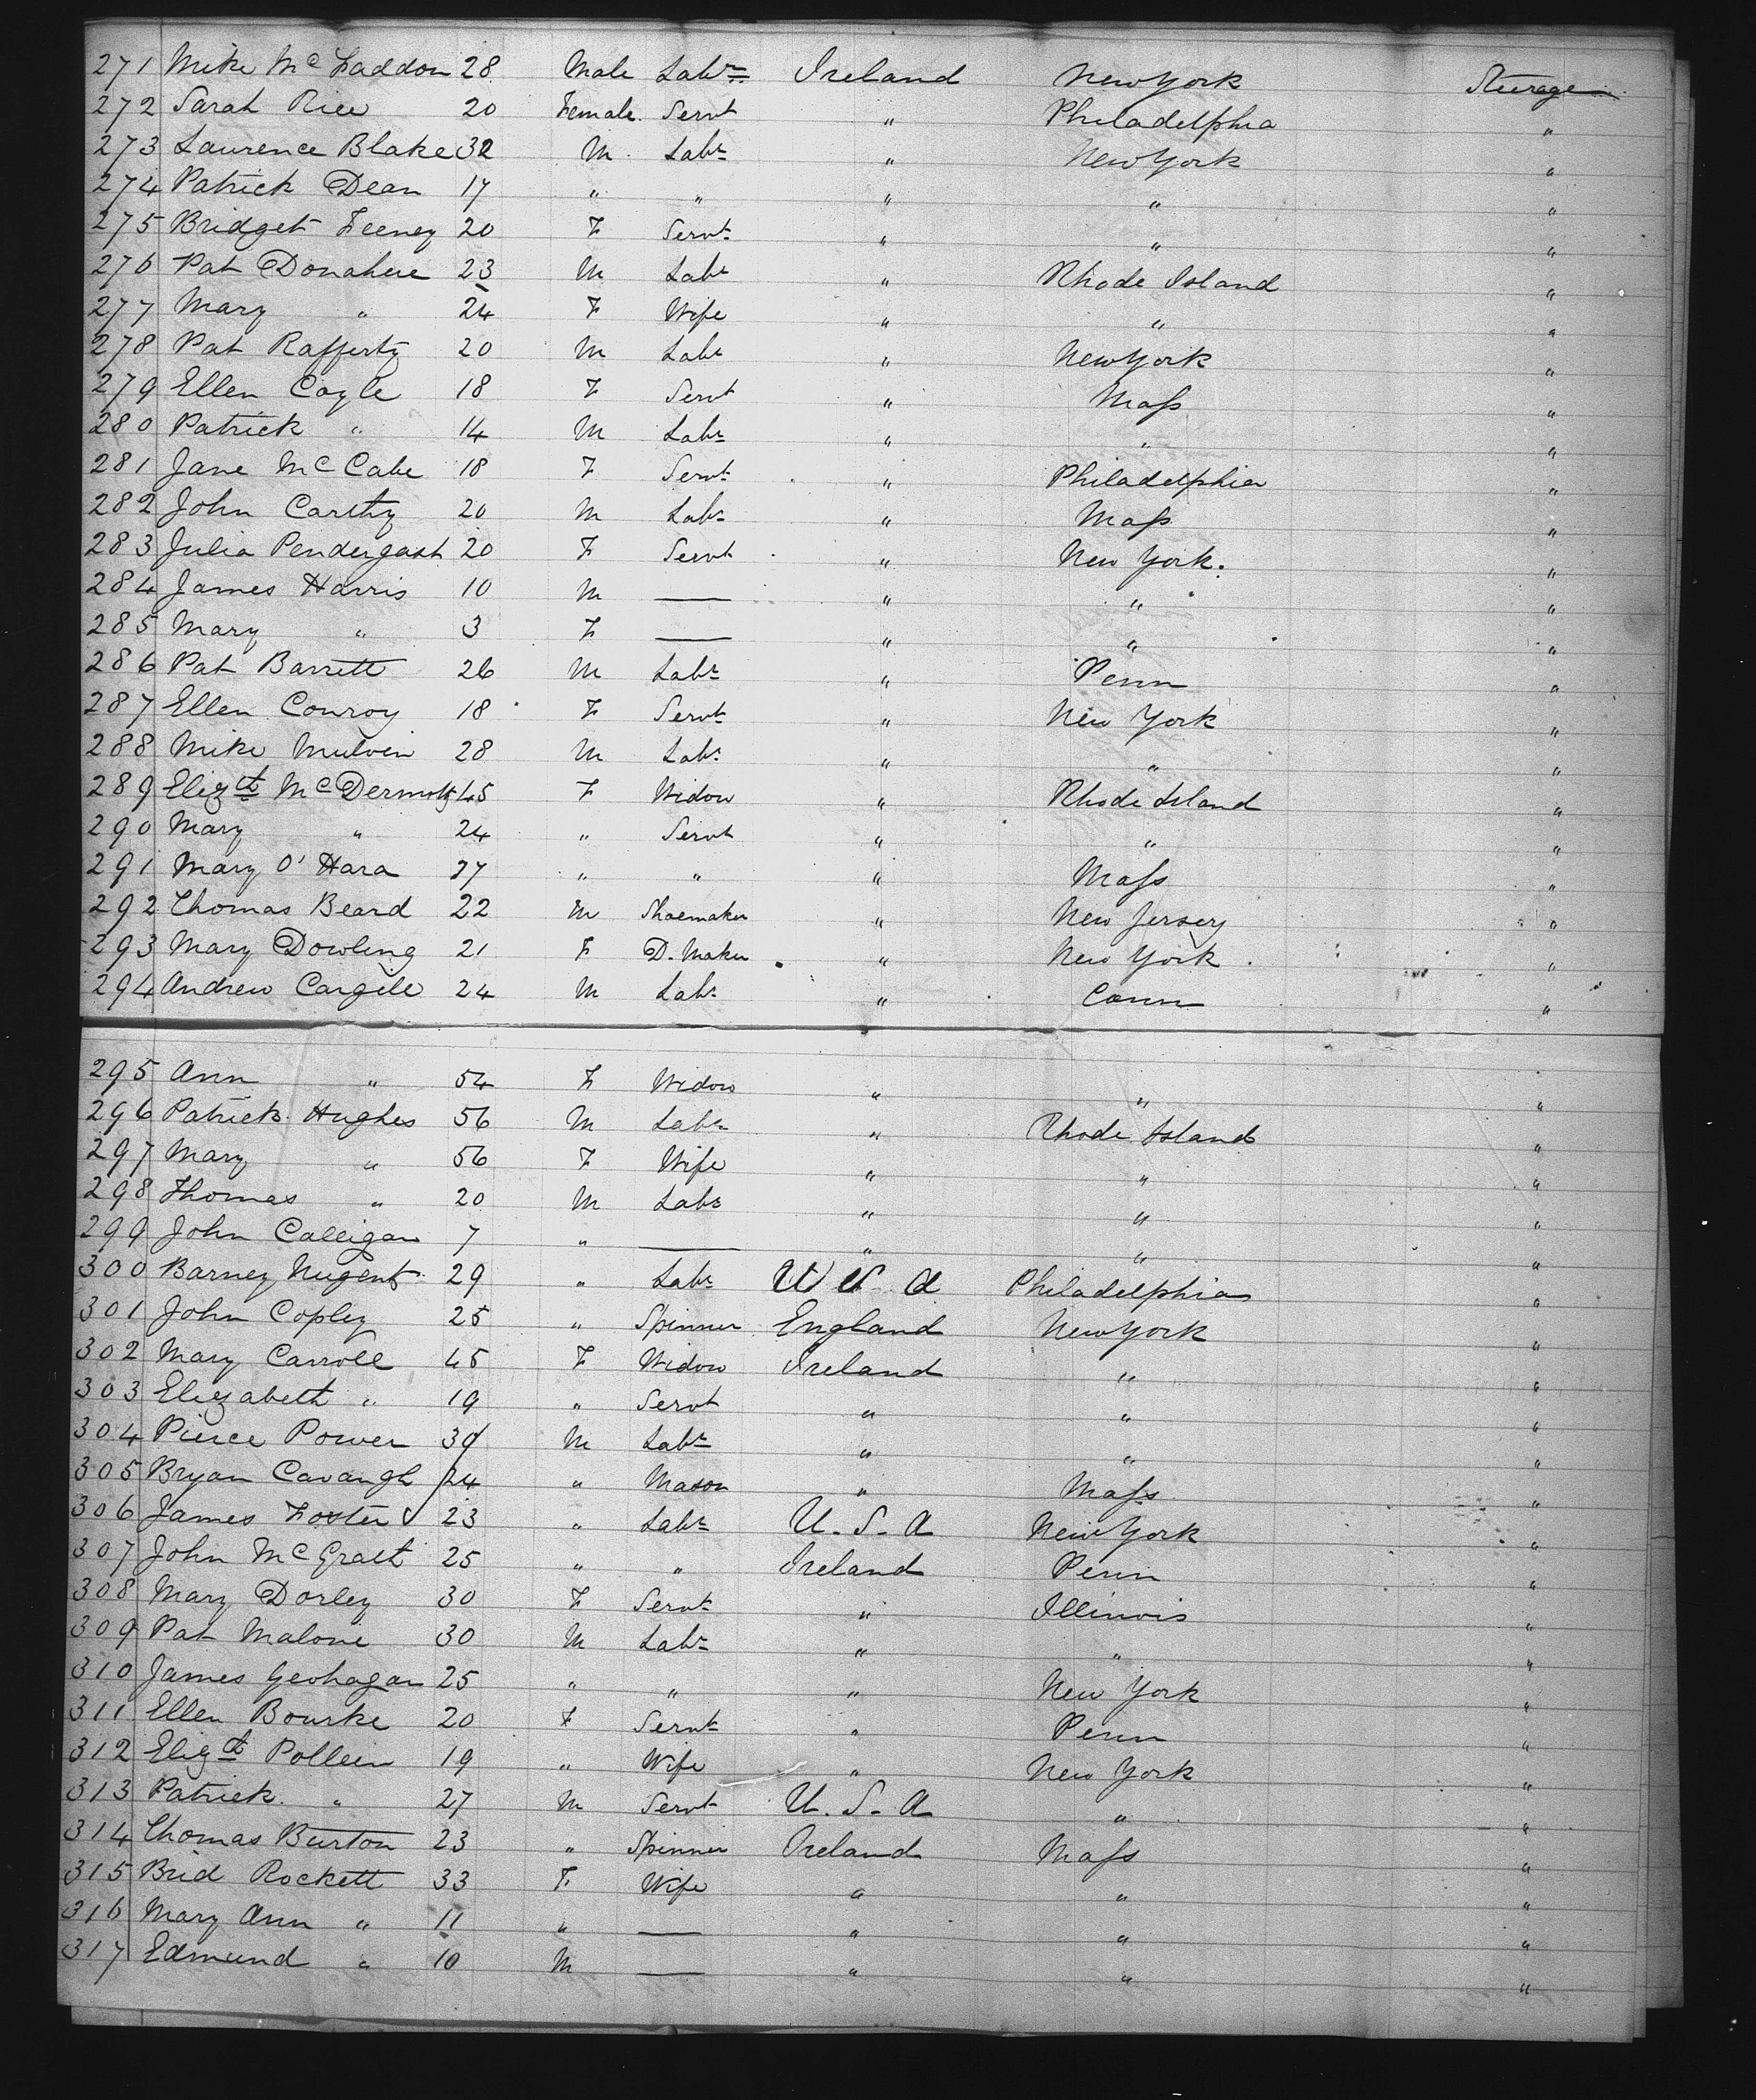 271 Mike McFaddon 28 Male Labr Ireland New York Steerage
272 Sarah Rice 20 Female Servt " Philadelphia "
273 Laurence Blake 32 M Labr " New York "
274 Patrick Dean 17 " " " " "
275 Bridget Feeney 20 F Servt " " "
276 Pat Donahue 23 M Labr " Rhode Island "
277 Mary " 24 F Wife " " "
278 Pat Rafferty 20 M Labr " New York "
279 Ellen Coyle 18 F Servt " Mass "
280 Patrick " 14 M Labr " " "
281 Jane McCabe 18 F Servt " Philadelphia "
282 John Carthy 20 M Labr " Mass "
283 Julia Pendergast 20 F Servt " New York. "
284 James Harris 10 M — " " "
285 Mary " 3 F — " " "
286 Pat Barrett 26 M Labr " Penn "
287 Ellen Conroy 18 F Servt " New York "
288 Mike Mulvin 28 M Labr " " "
289 Elizt McDermott 45 F Widow " Rhode Island "
290 Mary " 24 " Servt " " "
291 Mary O'Hara 27 " " " Mass "
292 Thomas Beard 22 M Shoemaker " New Jersey "
293 Mary Dowling 21 F D. Maker " New York "
294 Andrew Cargile 24 M Labr " Conn "
295 Ann " 54 F Widow " " "
296 Patrick Hughes 56 M Labr " Rhode Island "
297 Mary " 56 F Wife " " "
298 Thomas " 20 M Labr " " "
299 John Calligan 7 " — " " "
300 Barney Nugent 29 " Labr U S A Philadelphia "
301 John Copley 25 " Spinner England New York "
302 Mary Carroll 45 F Widow Ireland " "
303 Elizabeth " 19 " Servt " " "
304 Pierce Power 30 M Labr " " "
305 Bryan Cavangh 24 " Mason " Mass "
306 James Foster 23 " Labr U. S. A New York "
307 John McGrath 25 " " Ireland Penn "
308 Mary Dorley 30 F Servt " Illinois "
309 Pat Malone 30 M Labr " " "
310 James Geohagan 25 " " " New York "
311 Ellen Bourke 20 F Servt " Penn "
312 Elizt Pollein 19 " Wife " New York "
313 Patrick " 27 M Servt U. S. A " "
314 Thomas Burton 23 " Spinner Ireland Mass "
315 Brid Rockett 33 F. Wife " " "
316 Mary Ann " 11 " — " " "
317 Edmund " 10 M — " " "